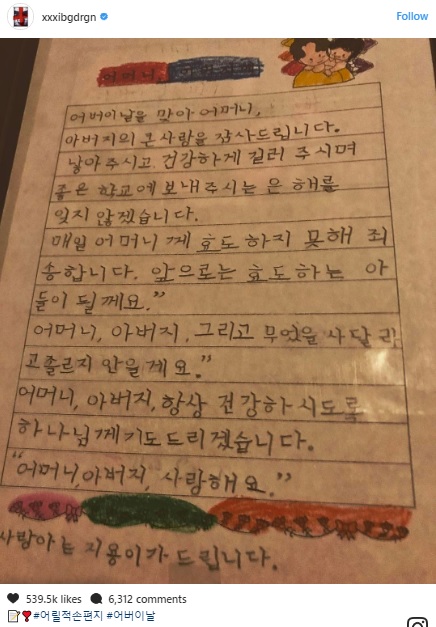 xxxibgdrgn
Follow
어머니,
어버이날을 맞아 어머니,
아버지의 큰사랑을 감사드립니다.
낳아주시고 건강하게 길러 주시며
좋은 학교에 보내주시는 은혜를
잊지 않겠습니다.
매일 어머니께 효도하지 못해 죄
송합니다. 앞으로는 효도하는 아
들이 될께요."
어머니, 아버지, 그리고 무엇을 사달라
고졸르지 안을게요."
어머니, 아버지, 항상 건강하시도록
하나님께기도드리겠습니다.
"어머니,아버지, 사랑해요."
지용이가 드립니다.
539.5k likes 6,312 comments
#어릴적손편지 #어버이날